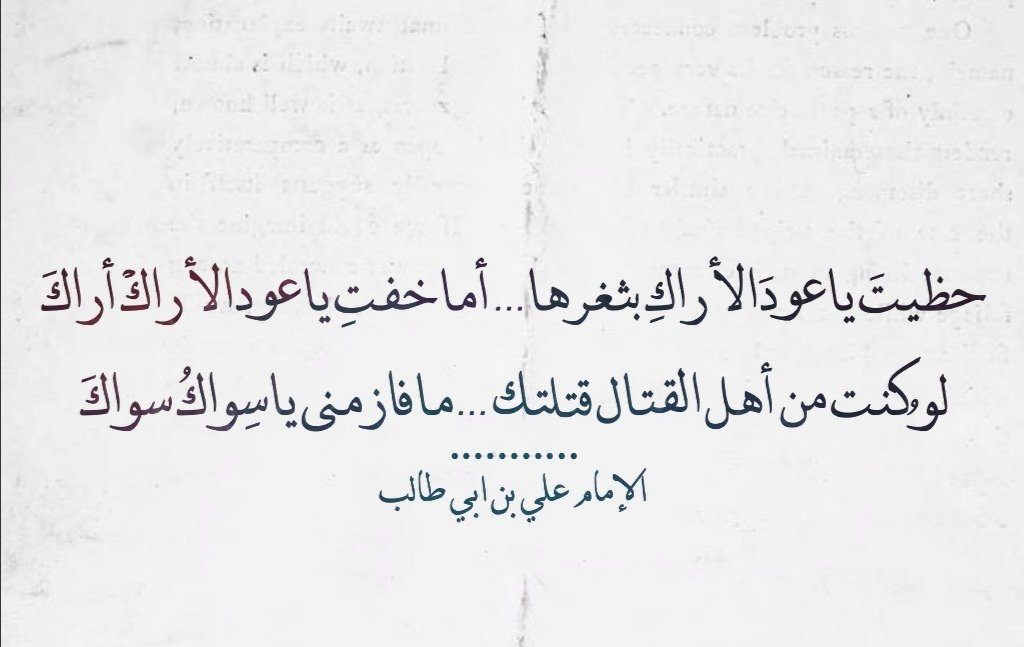 حظيتَ ياعودَالأراكِ بثغرها...أما خفتِ ياعودالأراكْ أراكَ
لوكُنت من أهل القتال قتلتك...ما فاز منى ياسِواكُ سواكَ
...........
الإمام علي بن ابي طالب